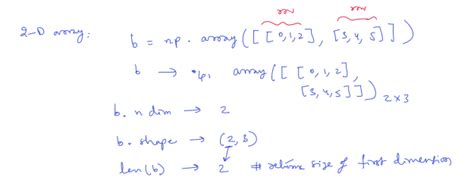 row row
2-D array: b = np.array([[0,1,2], [3,4,5]])
b → o/p, array([[0,1,2],
[3,4,5]]) 2x3
b.ndim → 2
b.shape → (2,3)
len(b) → 2 # returns size of first dimension